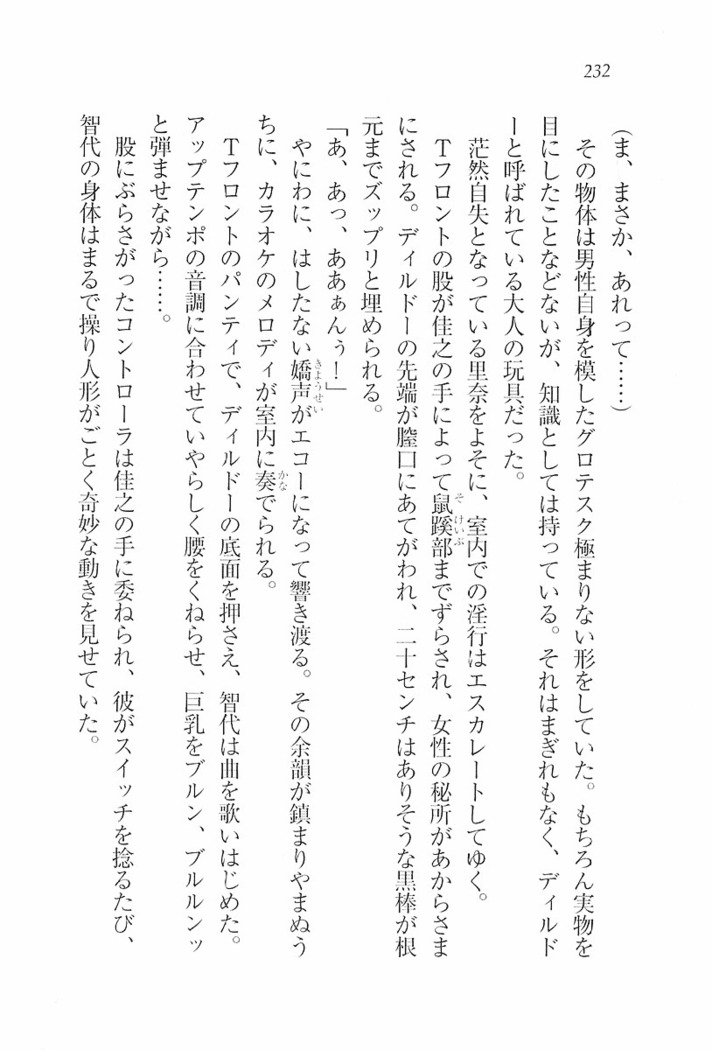 232
(ま、まさか、あれって……)
その物体は男性自身を模したグロテスク極まりない形をしていた。もちろん実物を
目にしたことなどないが、知識としては持っている。それはまぎれもなく、ディルド
ーと呼ばれている大人の玩具だった。
茫然自失となっている里奈をよそに、室内での淫行はエスカレートしてゆく。
Tフロントの股が佳之の手によって鼠蹊部までずらされ、女性の秘所があからさま
にされる。ディルドーの先端が膣口にあてがわれ、二十センチはありそうな黒棒が根
元までズップリと埋められる。
「あ、あっ、ああぁんぅ！」
やにわに、はしたない嬌声がエコーになって響き渡る。その余韻が鎮まりやまぬう
ちに、カラオケのメロディが室内に奏でられる。
Tフロントのパンティで、ディルドーの底面を押さえ、智代は曲を歌いはじめた。
アップテンポの音調に合わせていやらしく腰をくねらせ、巨乳をブルン、ブルルンッ
と弾ませながら……。
股にぶらさがったコントローラは佳之の手に委ねられ、彼がスイッチを捻るたび、
智代の身体はまるで操り人形がごとく奇妙な動きを見せていた。